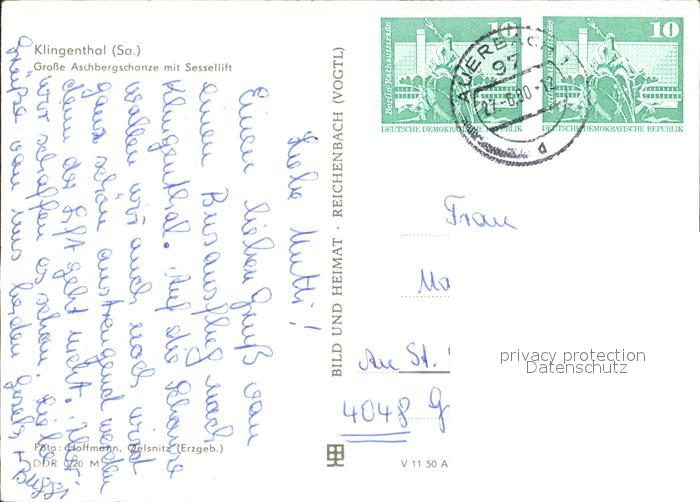 Klingenthal (Sa.)
Große Aschbergschanze mit Sessellift
Liebe Mutti!
Einen lieben Gruß von
einen Busausflug nach
Klingenthal. Auf die Schanze
wollen wir auch noch, wird
ganz schön anstrengend werden
denn der Lift geht nicht. Aber
wir schaffen es schon. Liebe
Grüße von uns beiden
Foto: Hoffmann, Oelsnitz (Erzgeb.)
DDR 0,20 M
BILD UND HEIMAT · REICHENBACH (VOGTL)
V 11 50 A
Berlin, Rathausstraße
10
DEUTSCHE DEMOKRATISCHE REPUBLIK
Berlin, Rathausstraße
10
DEUTSCHE DEMOKRATISCHE REPUBLIK
AUERBACH
97
d
Frau
Mo
An St.
4048 G
privacy protection
Datenschutz